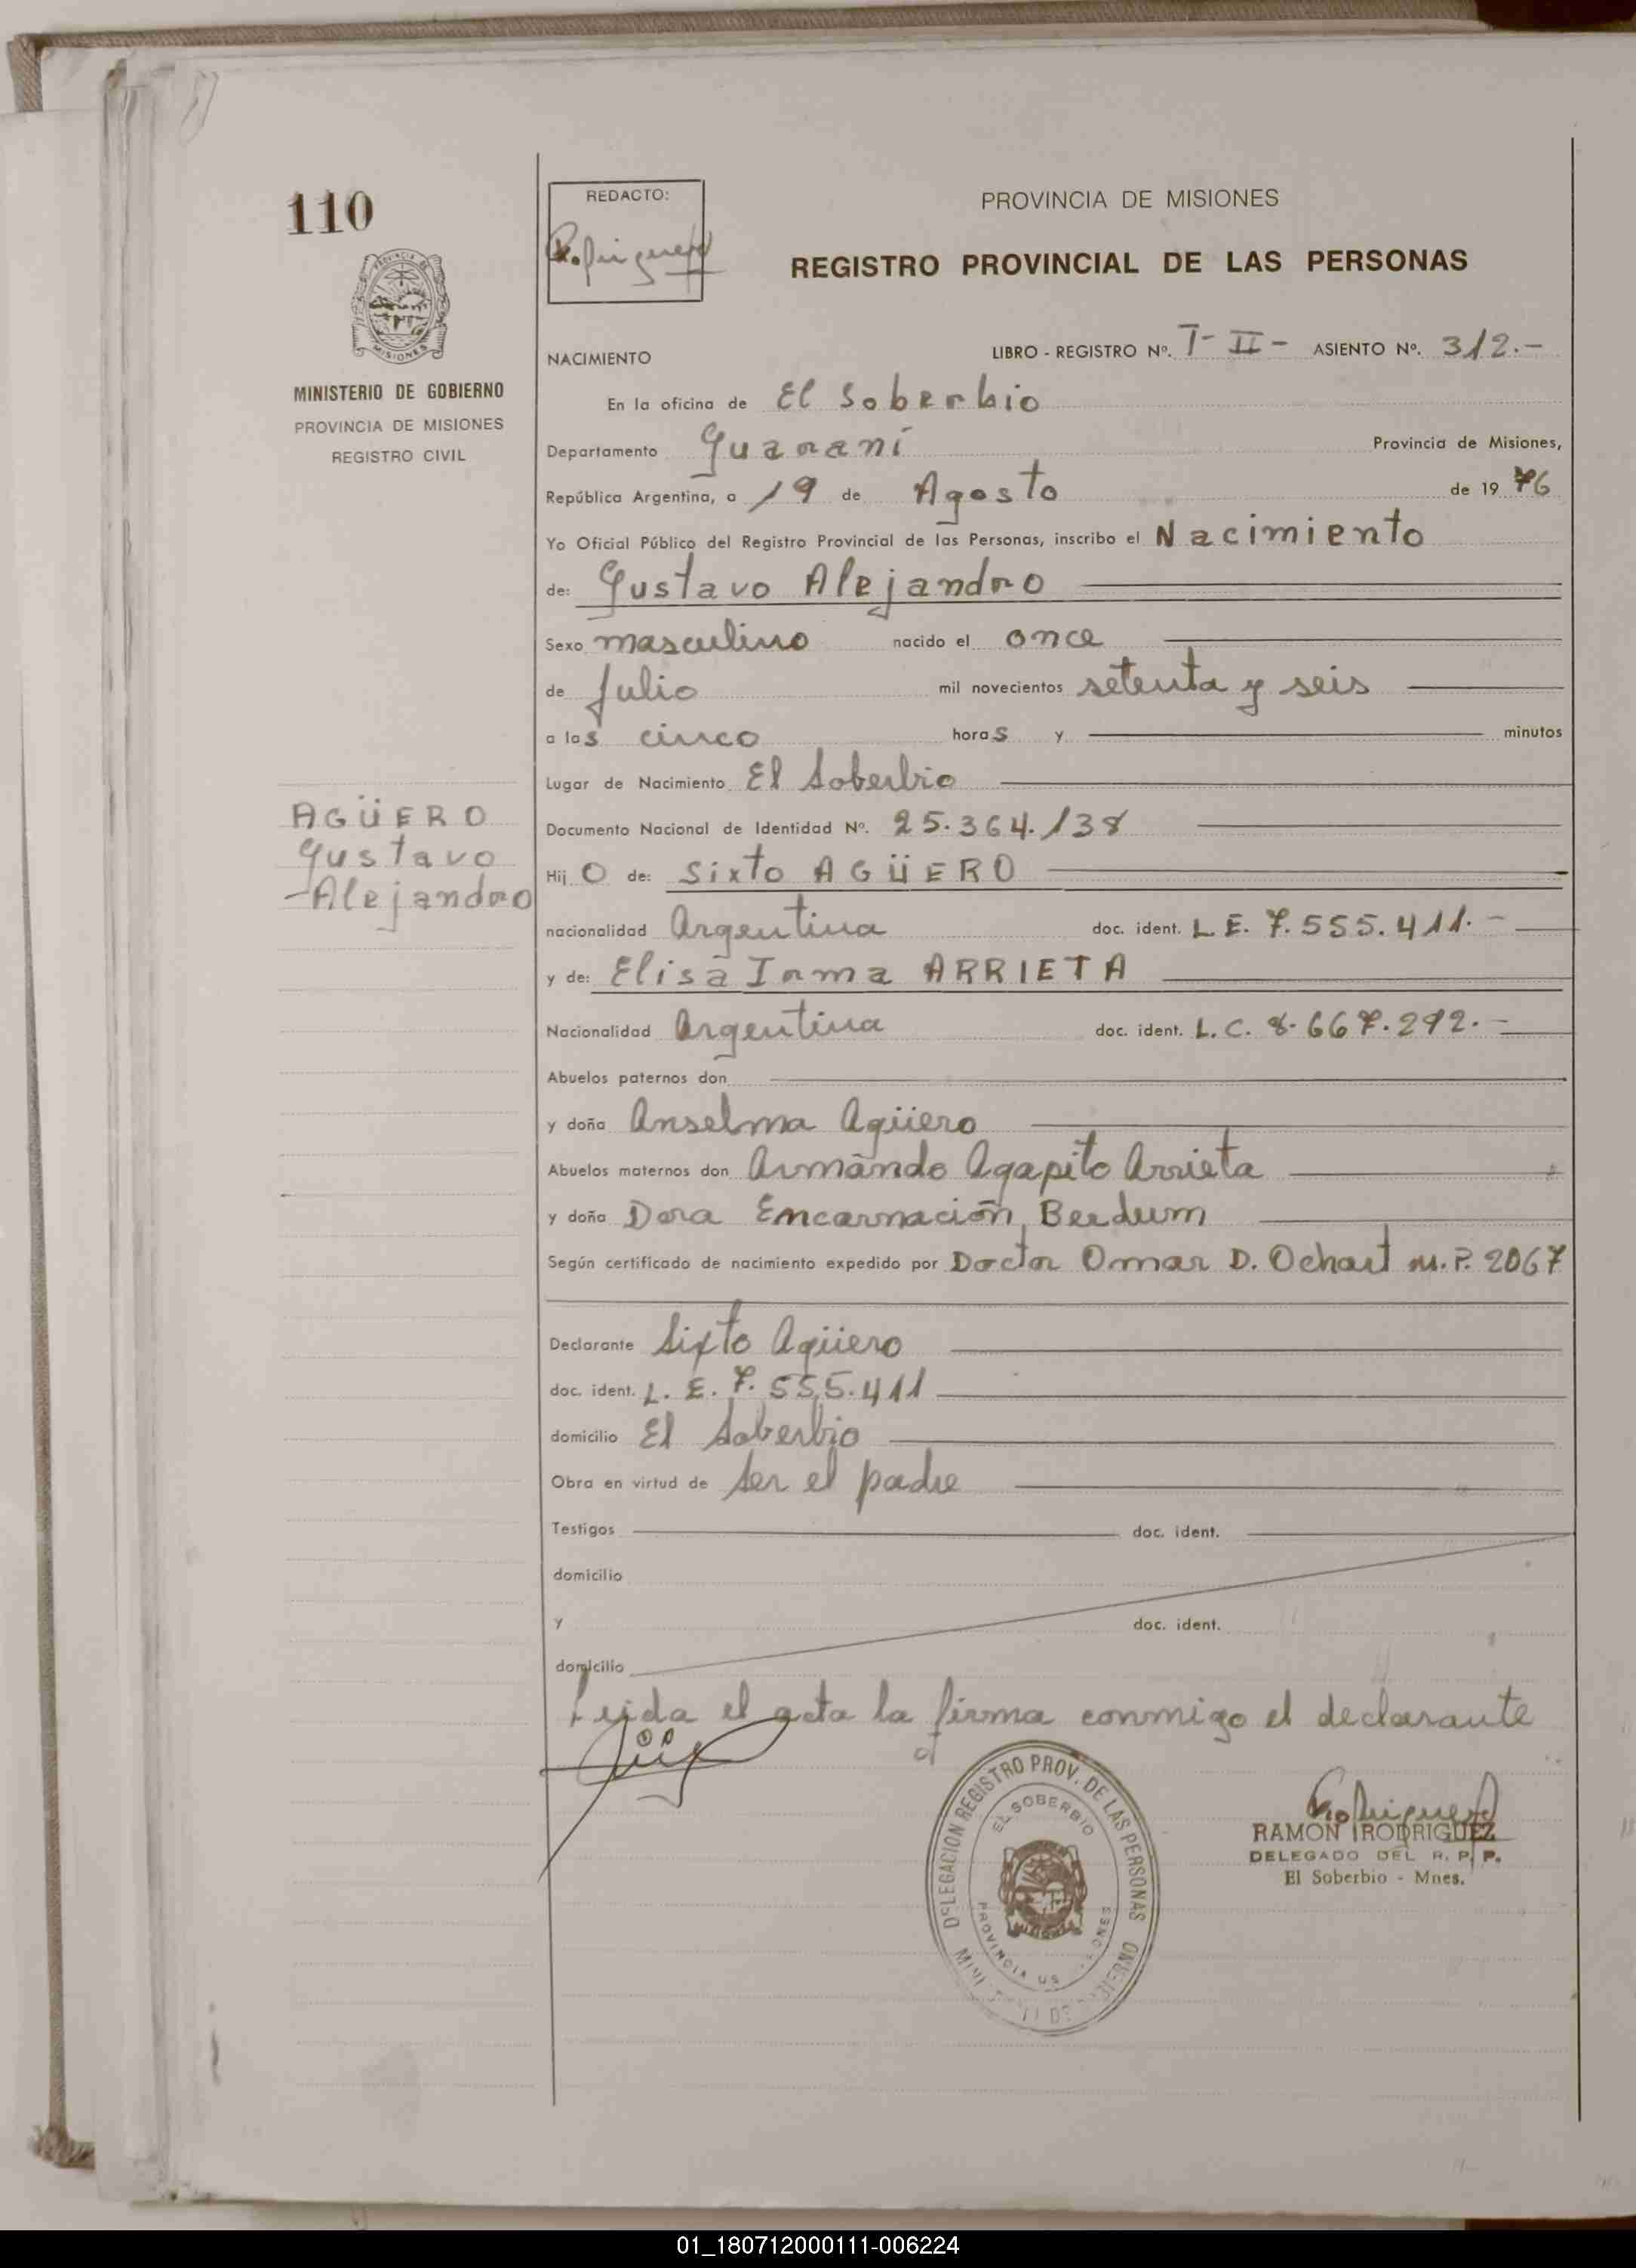 110
REDACTO:
PROVINCIA DE MISIONES
REGISTRO PROVINCIAL DE LAS PERSONAS
MISIONES
MINISTERIO DE GOBIERNO
PROVINCIA DE MISIONES
REGISTRO CIVIL
NACIMIENTO LIBRO - REGISTRO Nº. T- II - ASIENTO Nº. 312.-
En la oficina de El Soberbio
Departamento Guaraní Provincia de Misiones,
República Argentina, a 19 de Agosto de 19 76
Yo Oficial Público del Registro Provincial de las Personas, inscribo el Nacimiento
de: Gustavo Alejandro
Sexo masculino nacido el once
de Julio mil novecientos setenta y seis
a las cinco horas y minutos
Lugar de Nacimiento El Soberbio
Documento Nacional de Identidad Nº. 25.364.138
AGÜERO
Gustavo
-Alejandro
Hijo de: Sixto AGÜERO
nacionalidad Argentina doc. ident. L. E. 7.555.411.-
y de: Elisa Irma ARRIETA
Nacionalidad Argentina doc. ident. L.C. 8.667.292.-
Abuelos paternos don
y doña Anselma Agüero
Abuelos maternos don Armando Agapito Arrieta
y doña Dora Encarnación Berdum
Según certificado de nacimiento expedido por Doctor Omar D. Ochart M.P. 2067
Declarante Sixto Agüero
doc. ident. L. E. 7.555.411
domicilio El Soberbio
Obra en virtud de ser el padre
Testigos doc. ident.
domicilio
y doc. ident.
domicilio
Leida el acta la firma conmigo el declarante
DELEGACION REGISTRO PROV. DE LAS PERSONAS
EL SOBERBIO
RAMON RODRIGUEZ
DELEGADO DEL R. P. P.
El Soberbio - Mnes.
01_180712000111-006224